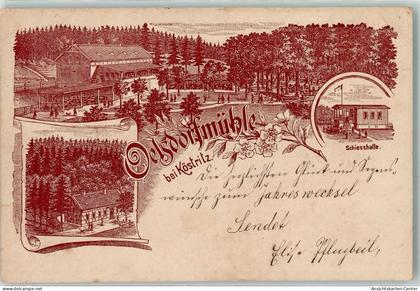 Oelsdorfmühle
bei Köstritz.
Schiesshalle.
Die herzlichsten Glück und Segens-
wünsche zum Jahreswechsel
Sendet
Elise Pflugbeil,
Ansichtskarten-Center